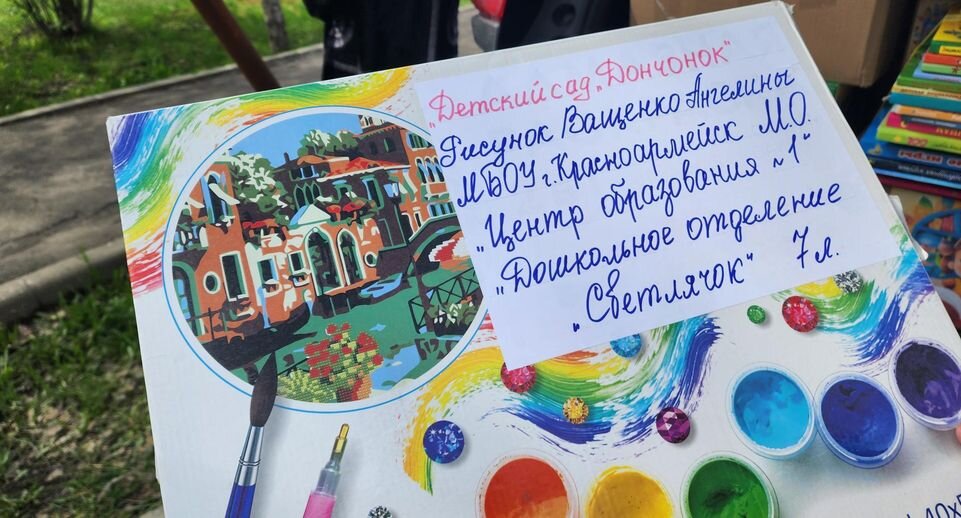 "Детский сад „Дончонок"
Рисунок Ващенко Ангелины
МБОУ г. Красноармейск М.О.
„Центр образования №1"
"Дошкольное отделение
„Светлячок" 7 л.